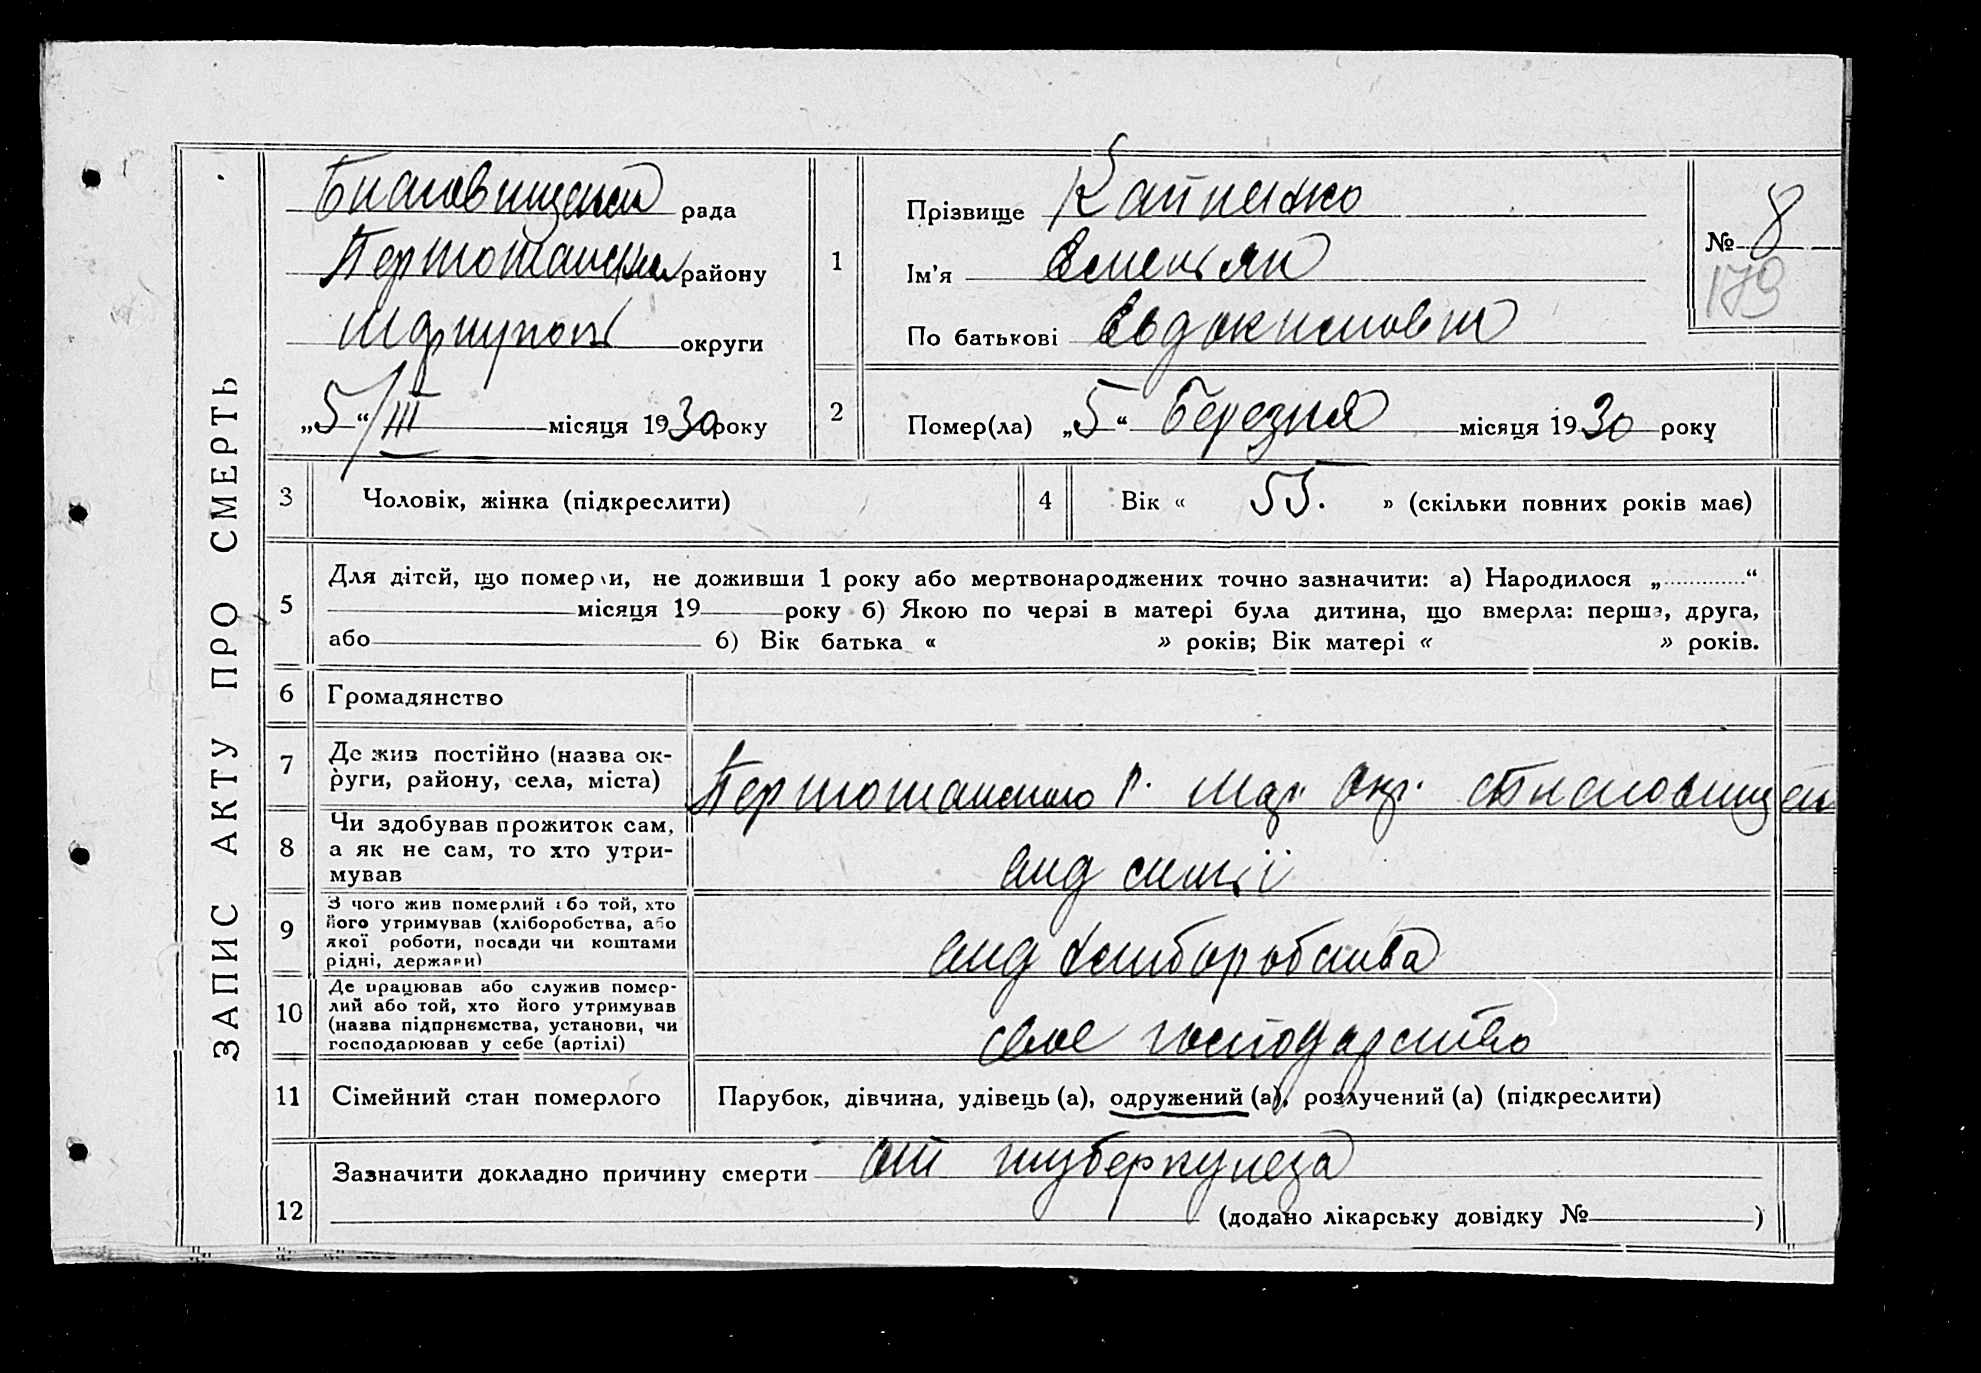 ЗАПИС АКТУ ПРО СМЕРТЬ
рада
району
округи
„5“/III місяця 1930 року
1
Прізвище
Ім'я Емельян
По батькові Євдокимович
№ 8
179
2
Помер(ла) „5“ Березня місяця 1930 року
3
Чоловік, жінка (підкреслити)
4
Вік « 55. » (скільки повних років має)
5
Для дітей, що померли, не доживши 1 року або мертвонароджених точно зазначити: а) Народилося „ “
місяця 19 року б) Якою по черзі в матері була дитина, що вмерла: перша, друга,
або б) Вік батька « » років; Вік матері « » років.
6
Громадянство
7
Де жив постійно (назва ок-
руги, району, села, міста)
Мар. Окр.
8
Чи здобував прожиток сам,
а як не сам, то хто утри-
мував
9
З чого жив померлий або той, хто
його утримував (хліборобства, або
якої роботи, посади чи коштами
рідні, держави)
10
Де працював або служив помер-
лий або той, хто його утримував
(назва підприємства, установи, чи
господарював у себе (артілі)
свое господарство
11
Сімейний стан померлого
Парубок, дівчина, удівець (а), одружений (а), розлучений (а) (підкреслити)
12
Зазначити докладно причину смерти от туберкулеза
(додано лікарську довідку № )